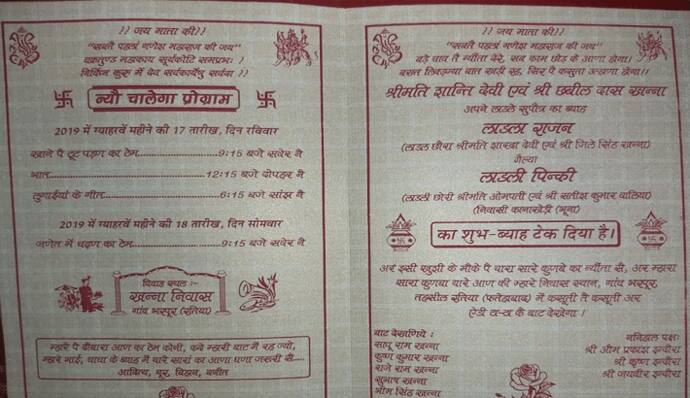 ?? जय माता की??
“सबतै पहल्यां गणेश महाराज की जय”
वक्रतुण्ड महाकाय सूर्यकोटि समप्रभः।
निर्विघ्न कुरू में देव सर्वकार्येषु सर्वदा ??
न्यौ चालेगा प्रोग्राम
2019 में ग्याहरवें महीने की 17 तारीख, दिन रविवार
खाने पै टूट पड़ण का टेम...............9:15 बजे सवेर नै
भात...............12:15 बजे दोपहर नै
लुगाईयां के गीत...............6:15 बजे सांझ नै
2019 में ग्याहरवें महीने की 18 तारीख, दिन सोमवार
जणेत में चढ़ण का टेम...............9:15 बजे सवेर नै
विवाह स्थल :-
खन्ना निवास
गांव भरपूर (रतिया)
म्हारे पै दौबारा आण का टेम कोनी, कदे म्हारी बाट में रह ज्यो,
म्हारे भाई, चाचा के ब्याह में थारे सारां का आणा घणा जरूरी सै....
?? जय माता की??
“सबतै पहल्यां गणेश महाराज की जय”
बड़े चाव तै न्यौंता देरे, सब काम छोड़ के आणा होगा।
श्रीमति शान्ति देवी एवं श्री छबील दास खन्ना
अपने लाडले सुपौत्र का ब्याह
लाडला गुंजन
(लाडला छौरा श्रीमति शारदा देवी एवं श्री जिले सिंह खन्ना)
गैल्या
लाडली पिन्की
(लाडली छोरी श्रीमति ओमपती एवं श्री सतीश कुमार वालिया)
(निवासी कानाखेड़ी (भूना)
का शुभ-ब्याह टेक दिया है।
अर इसी खुशी के मौके पै थारा सारे कुणबे का न्यौंता सै, अर म्हारा
सारा कुणबा थारे आण की म्हारे निवास स्थान, गांव भरपूर,
तहसील रतिया (फतेहाबाद) में कसूती तै कसूती अर
ऐडी ठा-ठा कै बाट देखेगा।
बाट देखणिये :
साधू राम खन्ना
कृष्ण कुमार खन्ना
राजे राम खन्ना
सुभाष खन्ना
भीम सिंह खन्ना
ननिहाल पक्षः
श्री औम प्रकाश इन्दौरा
श्री कृष्ण इन्दौरा
श्री जयवीर इन्दौरा